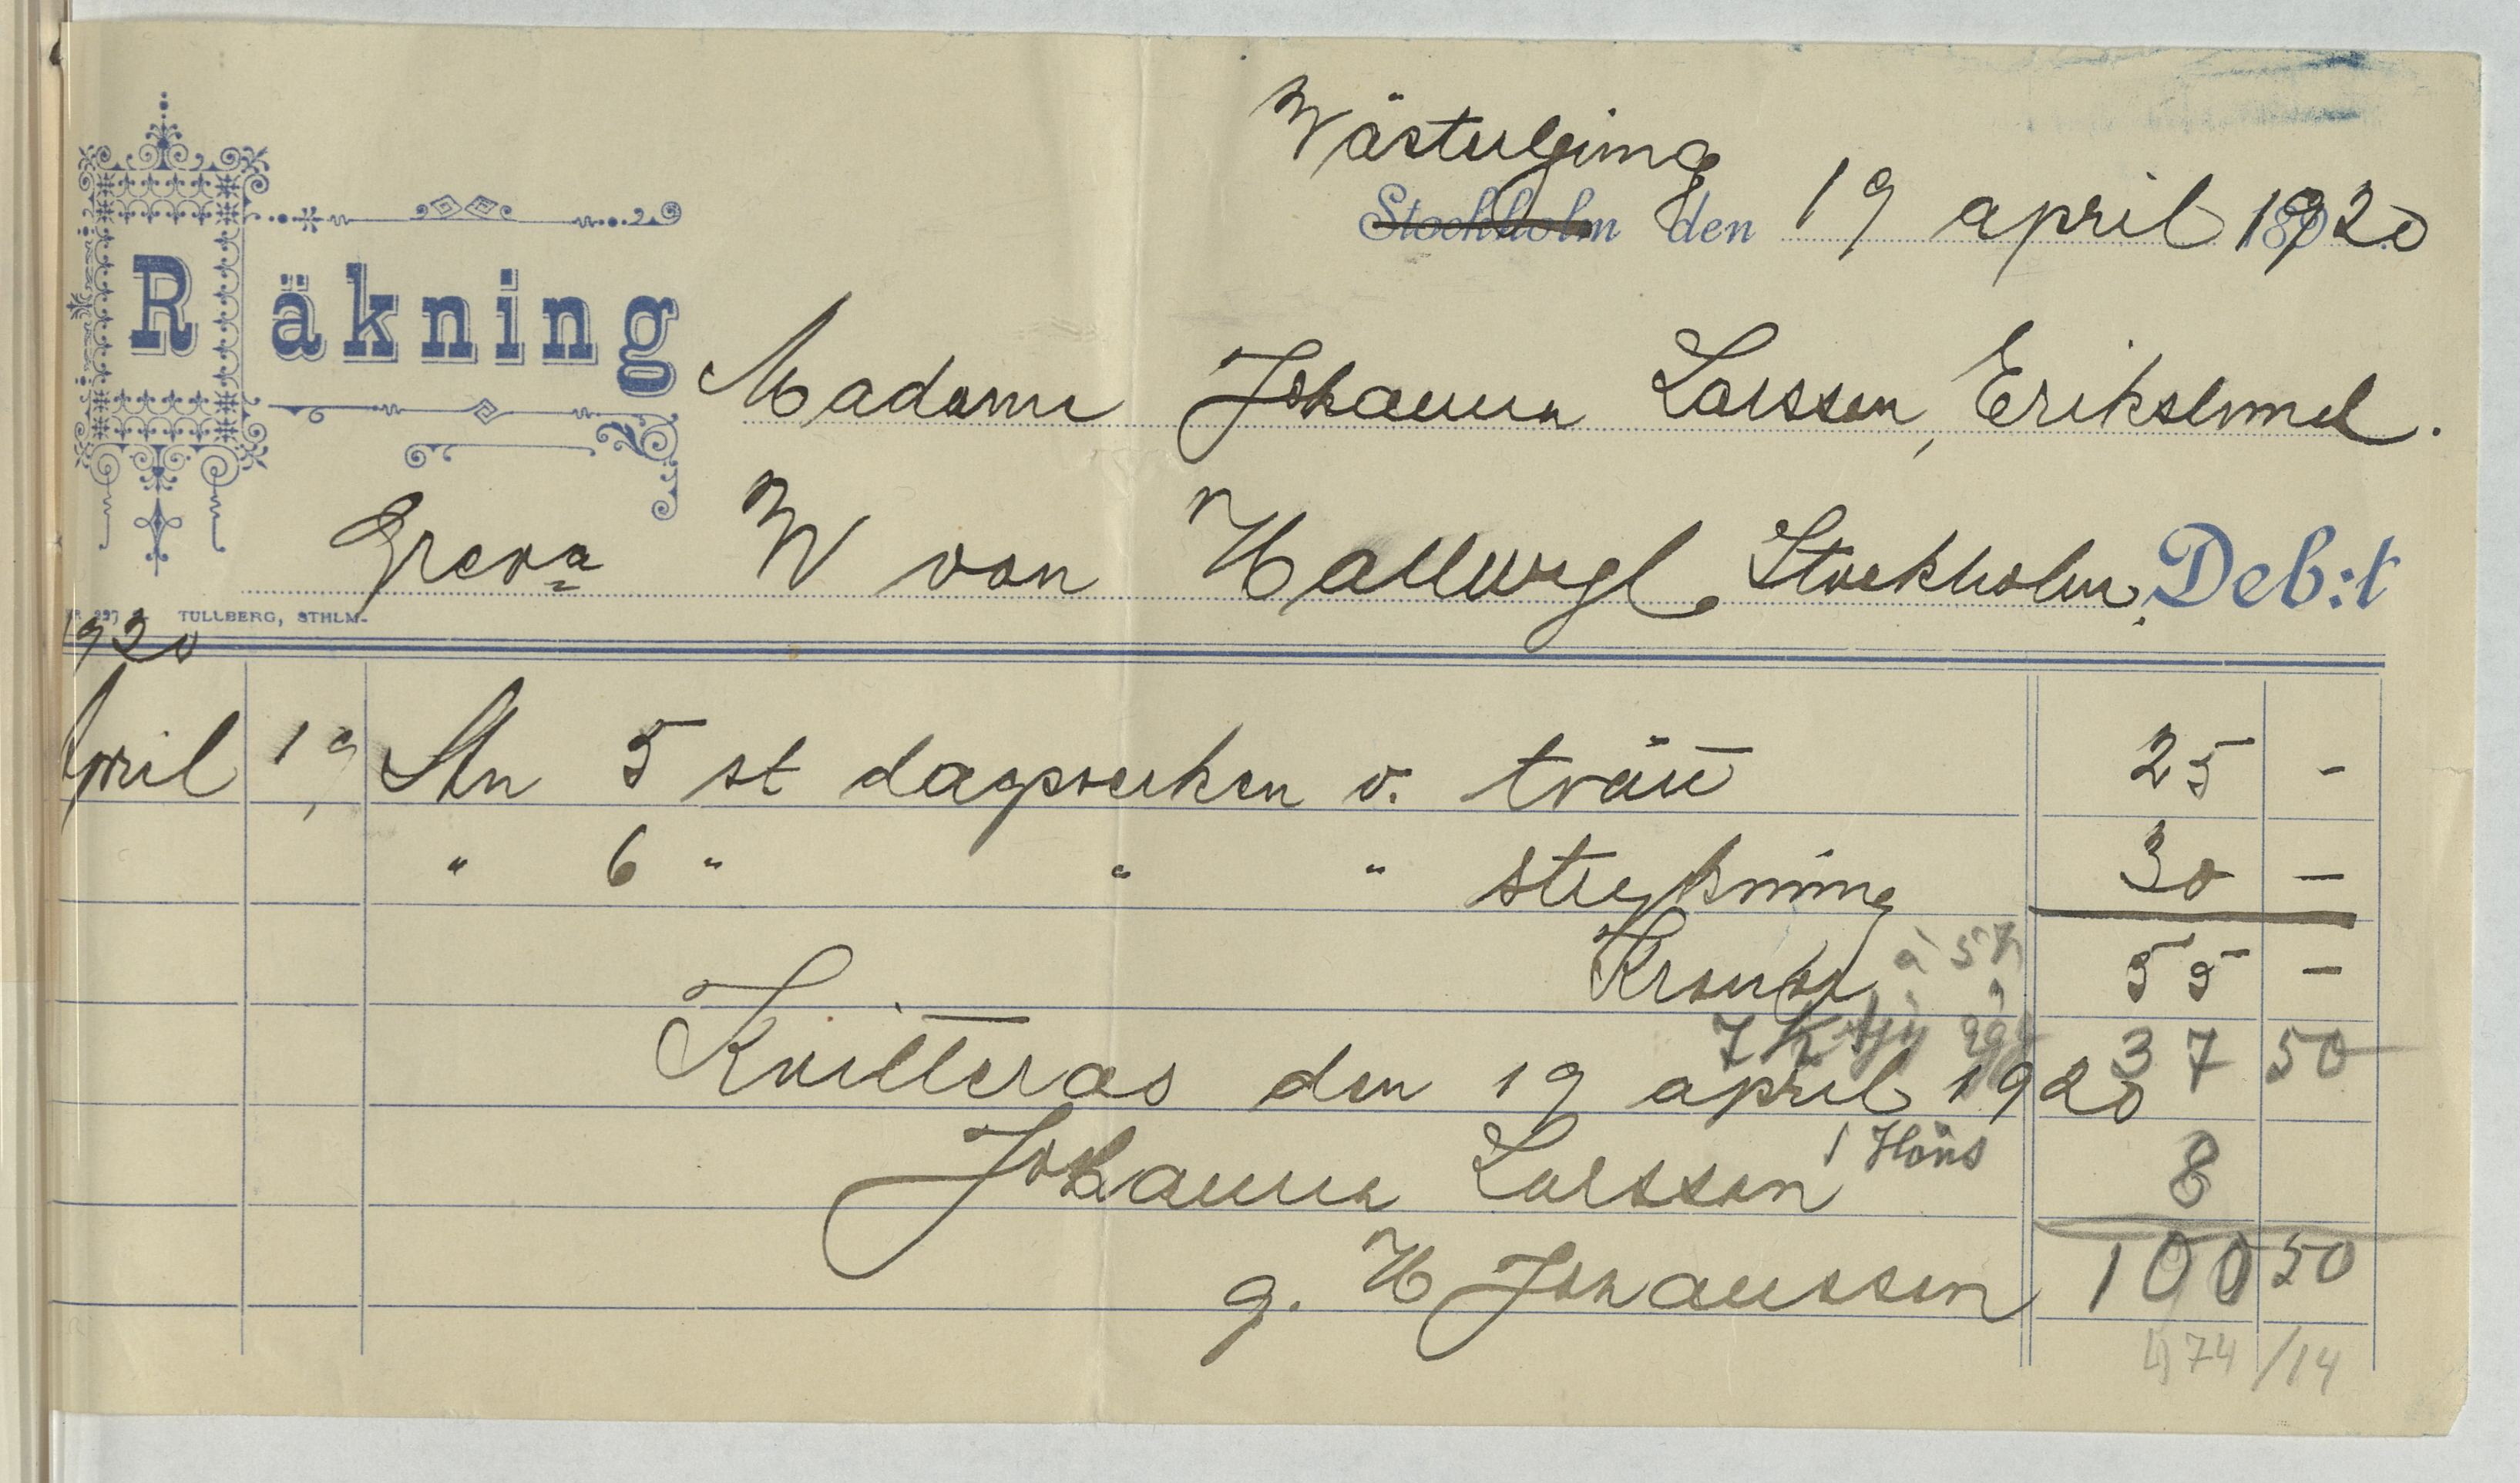 Wästuljung
Stockholm den 19 april 1920
Räkning
Madame Johanna Larsson, Erikslund.
Greva W von Hallwyl, Stockholm, Deb:t
TULLBERG, STHLM.
1920
April 19 An 5 st dagsverken v. tvätt 25 -
" 6 " " " strykning 30 -
Kronor à 5 k 55 -
7 37 50
Kvitteras den 19 april 1920
1 Höns 8
Johanna Larsson
g. H Johansson 100 50
474/14